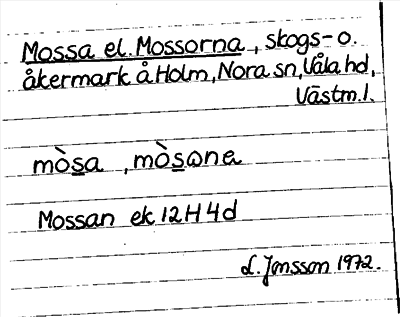 Mossa el. Mossorna, skogs- o.
åkermark å Holm, Nora sn, Våla hd,
Västm. l.
mòsa , mòsωna
Mossan ek 12H4d
L. Jonsson 1972.